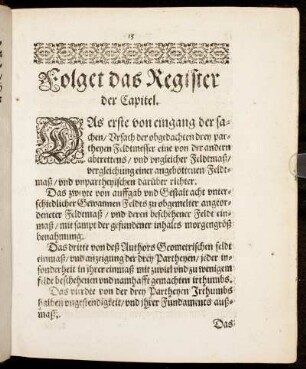 15
Folget das Register
der Capitel.
DAs erste von eingang der sa-
chen/ Vrsach der obgedachten drey par-
theyen Feldtmesser eine von der andern
abtrettens/ vnd vngleicher Feldtmaß/
vergleichung einer angebottenen Feldt-
maß/ vnd vnpartheyischen darüber richter.
Das zweyte von auffgab vnd Gestalt acht vnter-
schiedlicher Gewannen Feldts zu obgemelter angeor-
deneter Feldtmaß/ vnd deren beschehener Feldt ein-
maß/ mit sampt der gefundener inhales morgengröß
benahmung.
Das dritte von deß Authors Geometrischen feldt
einmaß/ vnd anzeigung der drey Partheyen/ jeder in-
sonderheit in ihrer einmaß mit zuviel vnd zu wenigem
fildt beschehenen vnd namhafft gemachten irthumbs.
Das vierdte von der drey Partheyen Irthumbs
halben vngestendigkeit/ vnd jhrer Fundaments auß-
maß.
Das